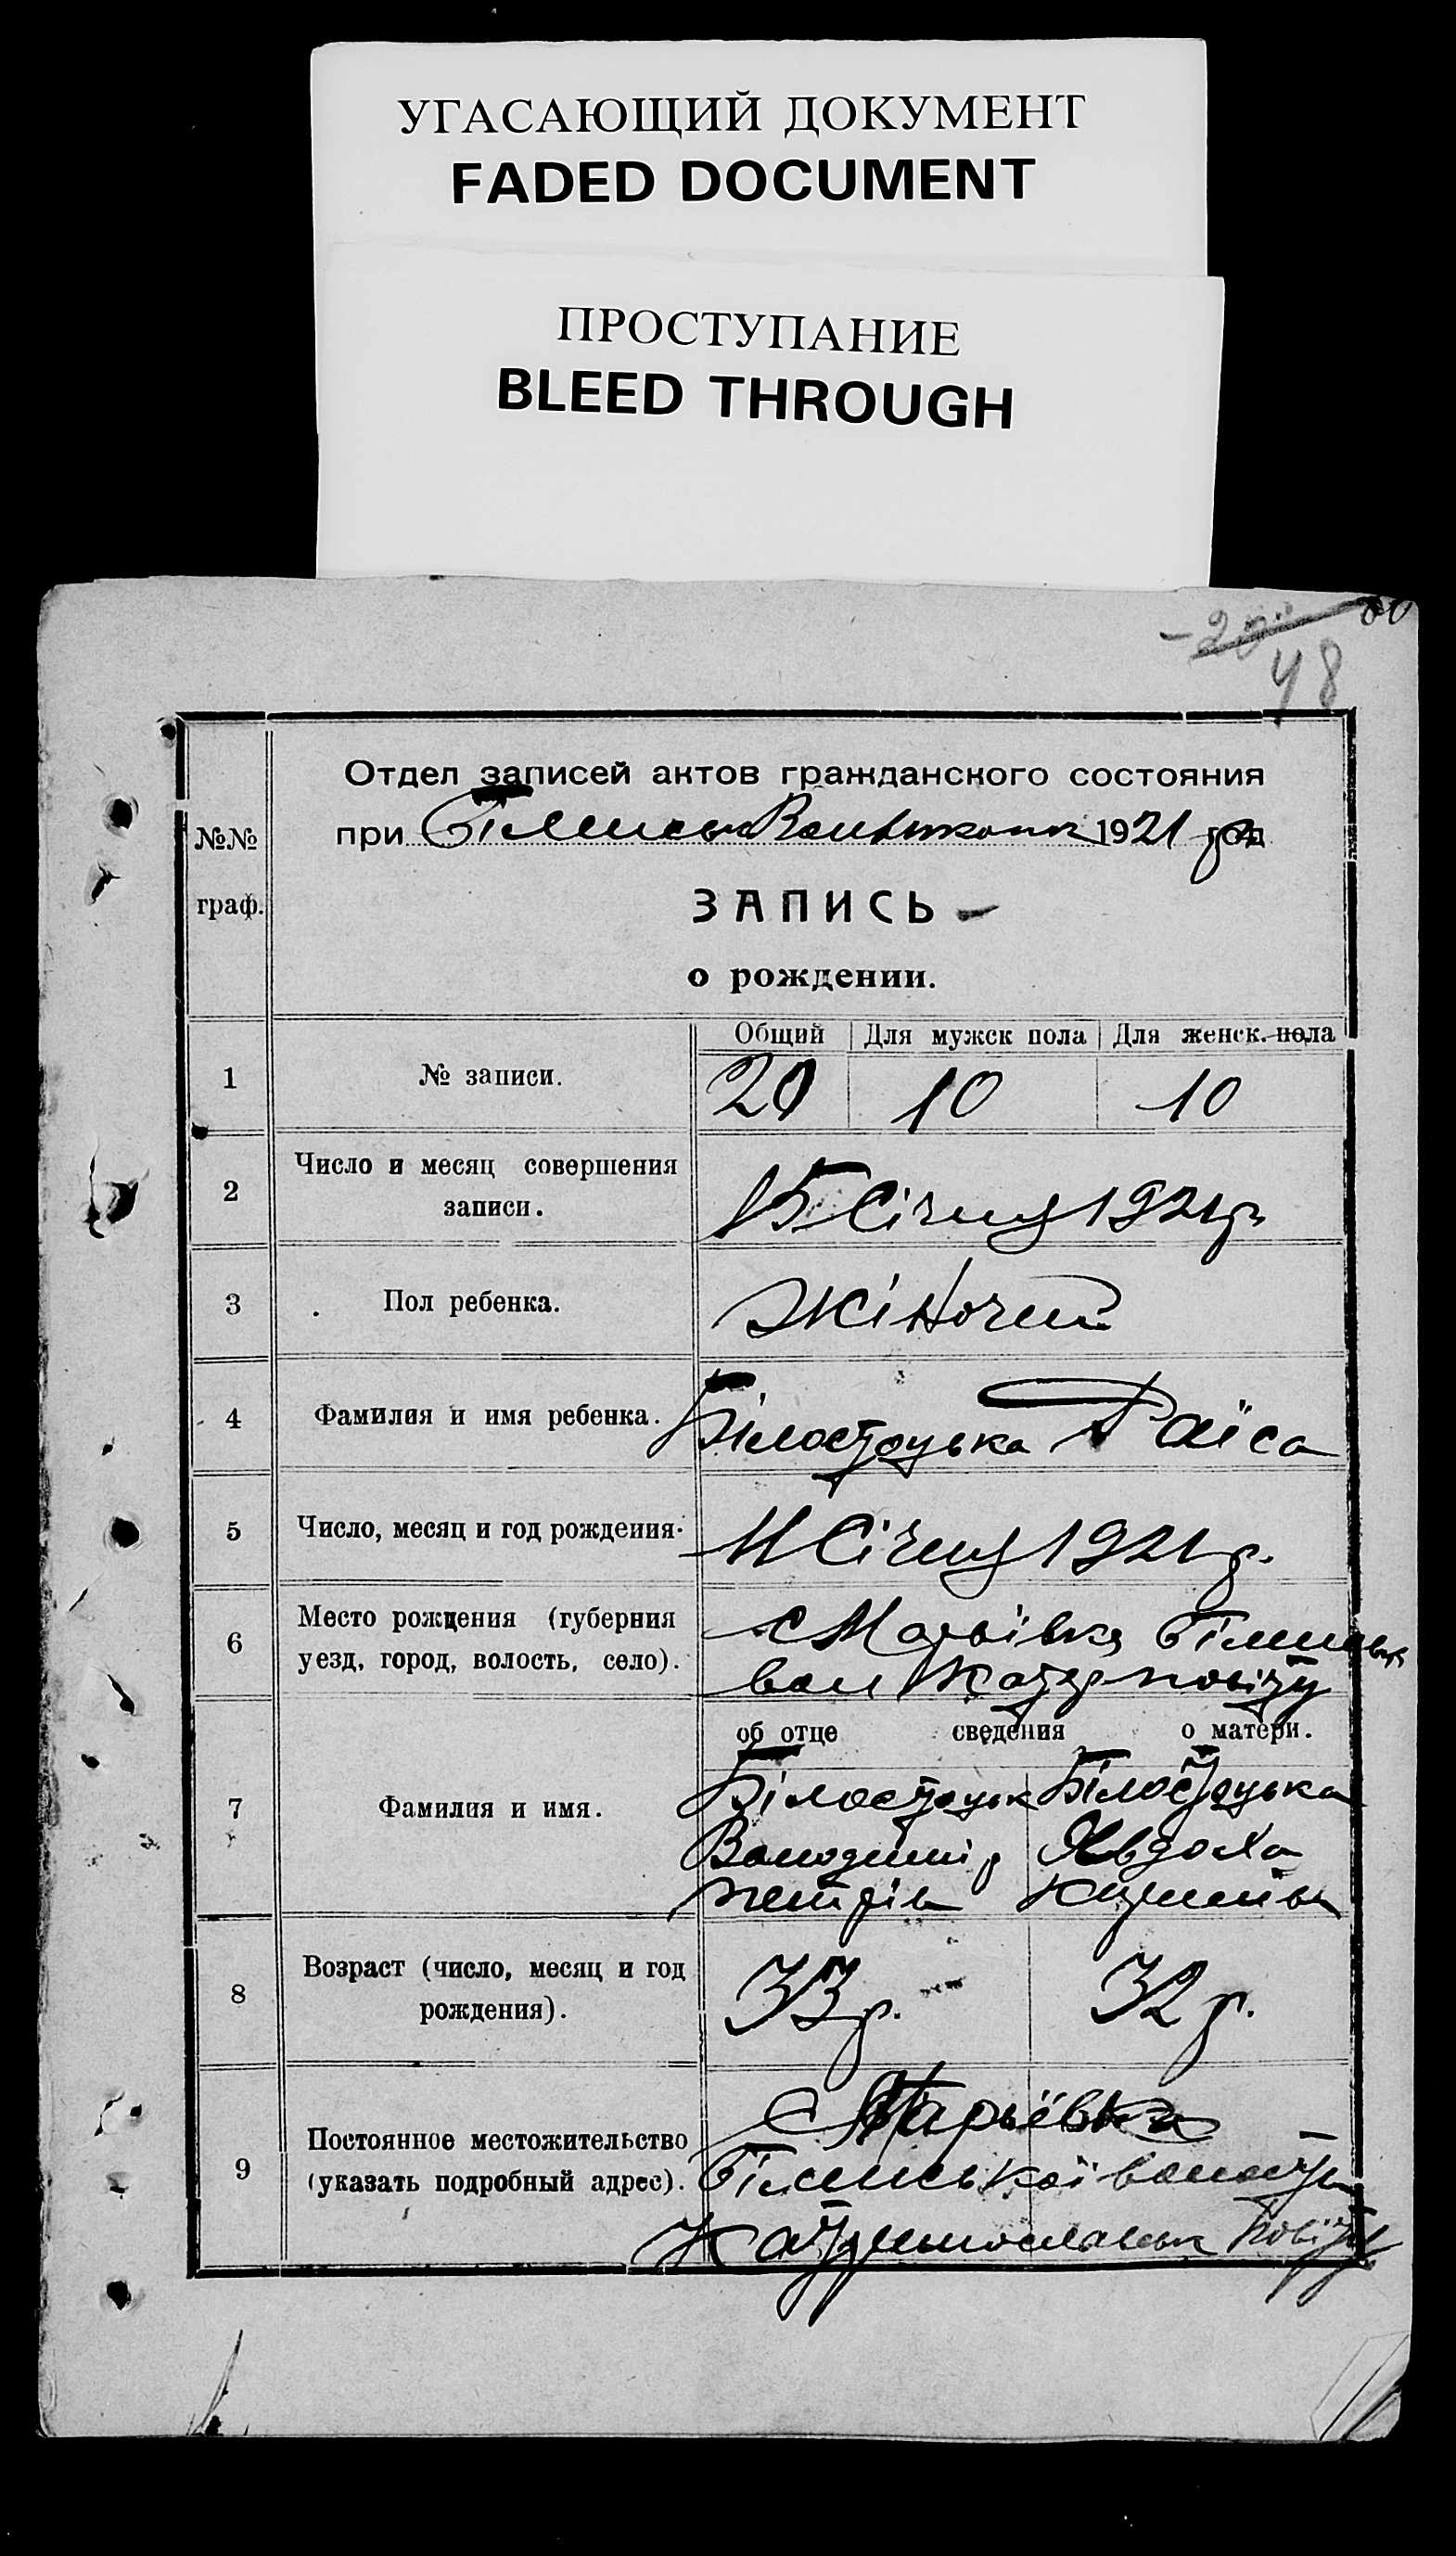 УГАСАЮЩИЙ ДОКУМЕНТ
FADED DOCUMENT
ПРОСТУПАНИЕ
BLEED THROUGH
48
Отдел записей актов гражданского состояния
№№ при 1921 год
граф. ЗАПИСЬ
о рождении.
Общий Для мужск пола Для женск. пола
1 № записи. 20 10 10
2 Число и месяц совершения
записи. 15 Січня 1921 р
3 Пол ребенка. Жіночий
4 Фамилия и имя ребенка. Білостоцька Раїса
5 Число, месяц и год рождения. 11 Січня 1921 р.
6 Место рождения (губерния с Марьівка
уезд, город, волость, село). вол Катер повіту
об отце сведения о матери.
7 Фамилия и имя. Білостоцьк Білостоцька
Володимір Явдоха
петрів
8 Возраст (число, месяц и год
рождения). 33 р. 32 р.
с Марьівка
9 Постоянное местожительство
(указать подробный адрес). волости
Катеринославськ повіту